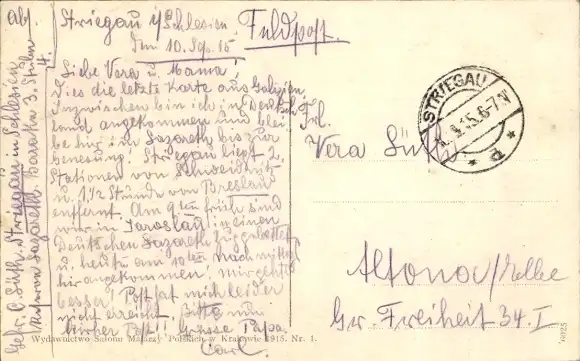 Striegau i/Schlesien. Feldpost.
Den 10. Sep. 15
Liebe Vera u. Mama!
Dies die letzte Karte aus Galizien,
Inzwischen bin ich in Deutsch
land angekommen und blei
be hier im Lazareth bis zur
Genesung! Striegau liegt 2.
Stationen von Schweidnitz
u. 1 1/2 Stunde von Breslau
entfernt. Am 9ten früh sind
wir in Jaroslau in einen
Deutschen Lazareth Zug
u. heute am 10ten Nachmittag
hir angekommen! mir geht
besser! Post hat mich leider
nicht erreicht, Bitte nun
hirher Post!! Grüsse Papa.
Carl
Wydawnictwo Salonu Malarzy Polskich w Krakowie 1915. Nr. 1.
Abs.
Gefr. C. Süth. Striegau in Schlesien
Reserve Lazareth. Baracke 3. Stube
4.
STRIEGAU
.9.15.6-7N
* d *
Frl.
Vera Süth
Altona/Elbe
Gr. Freiheit 34. I